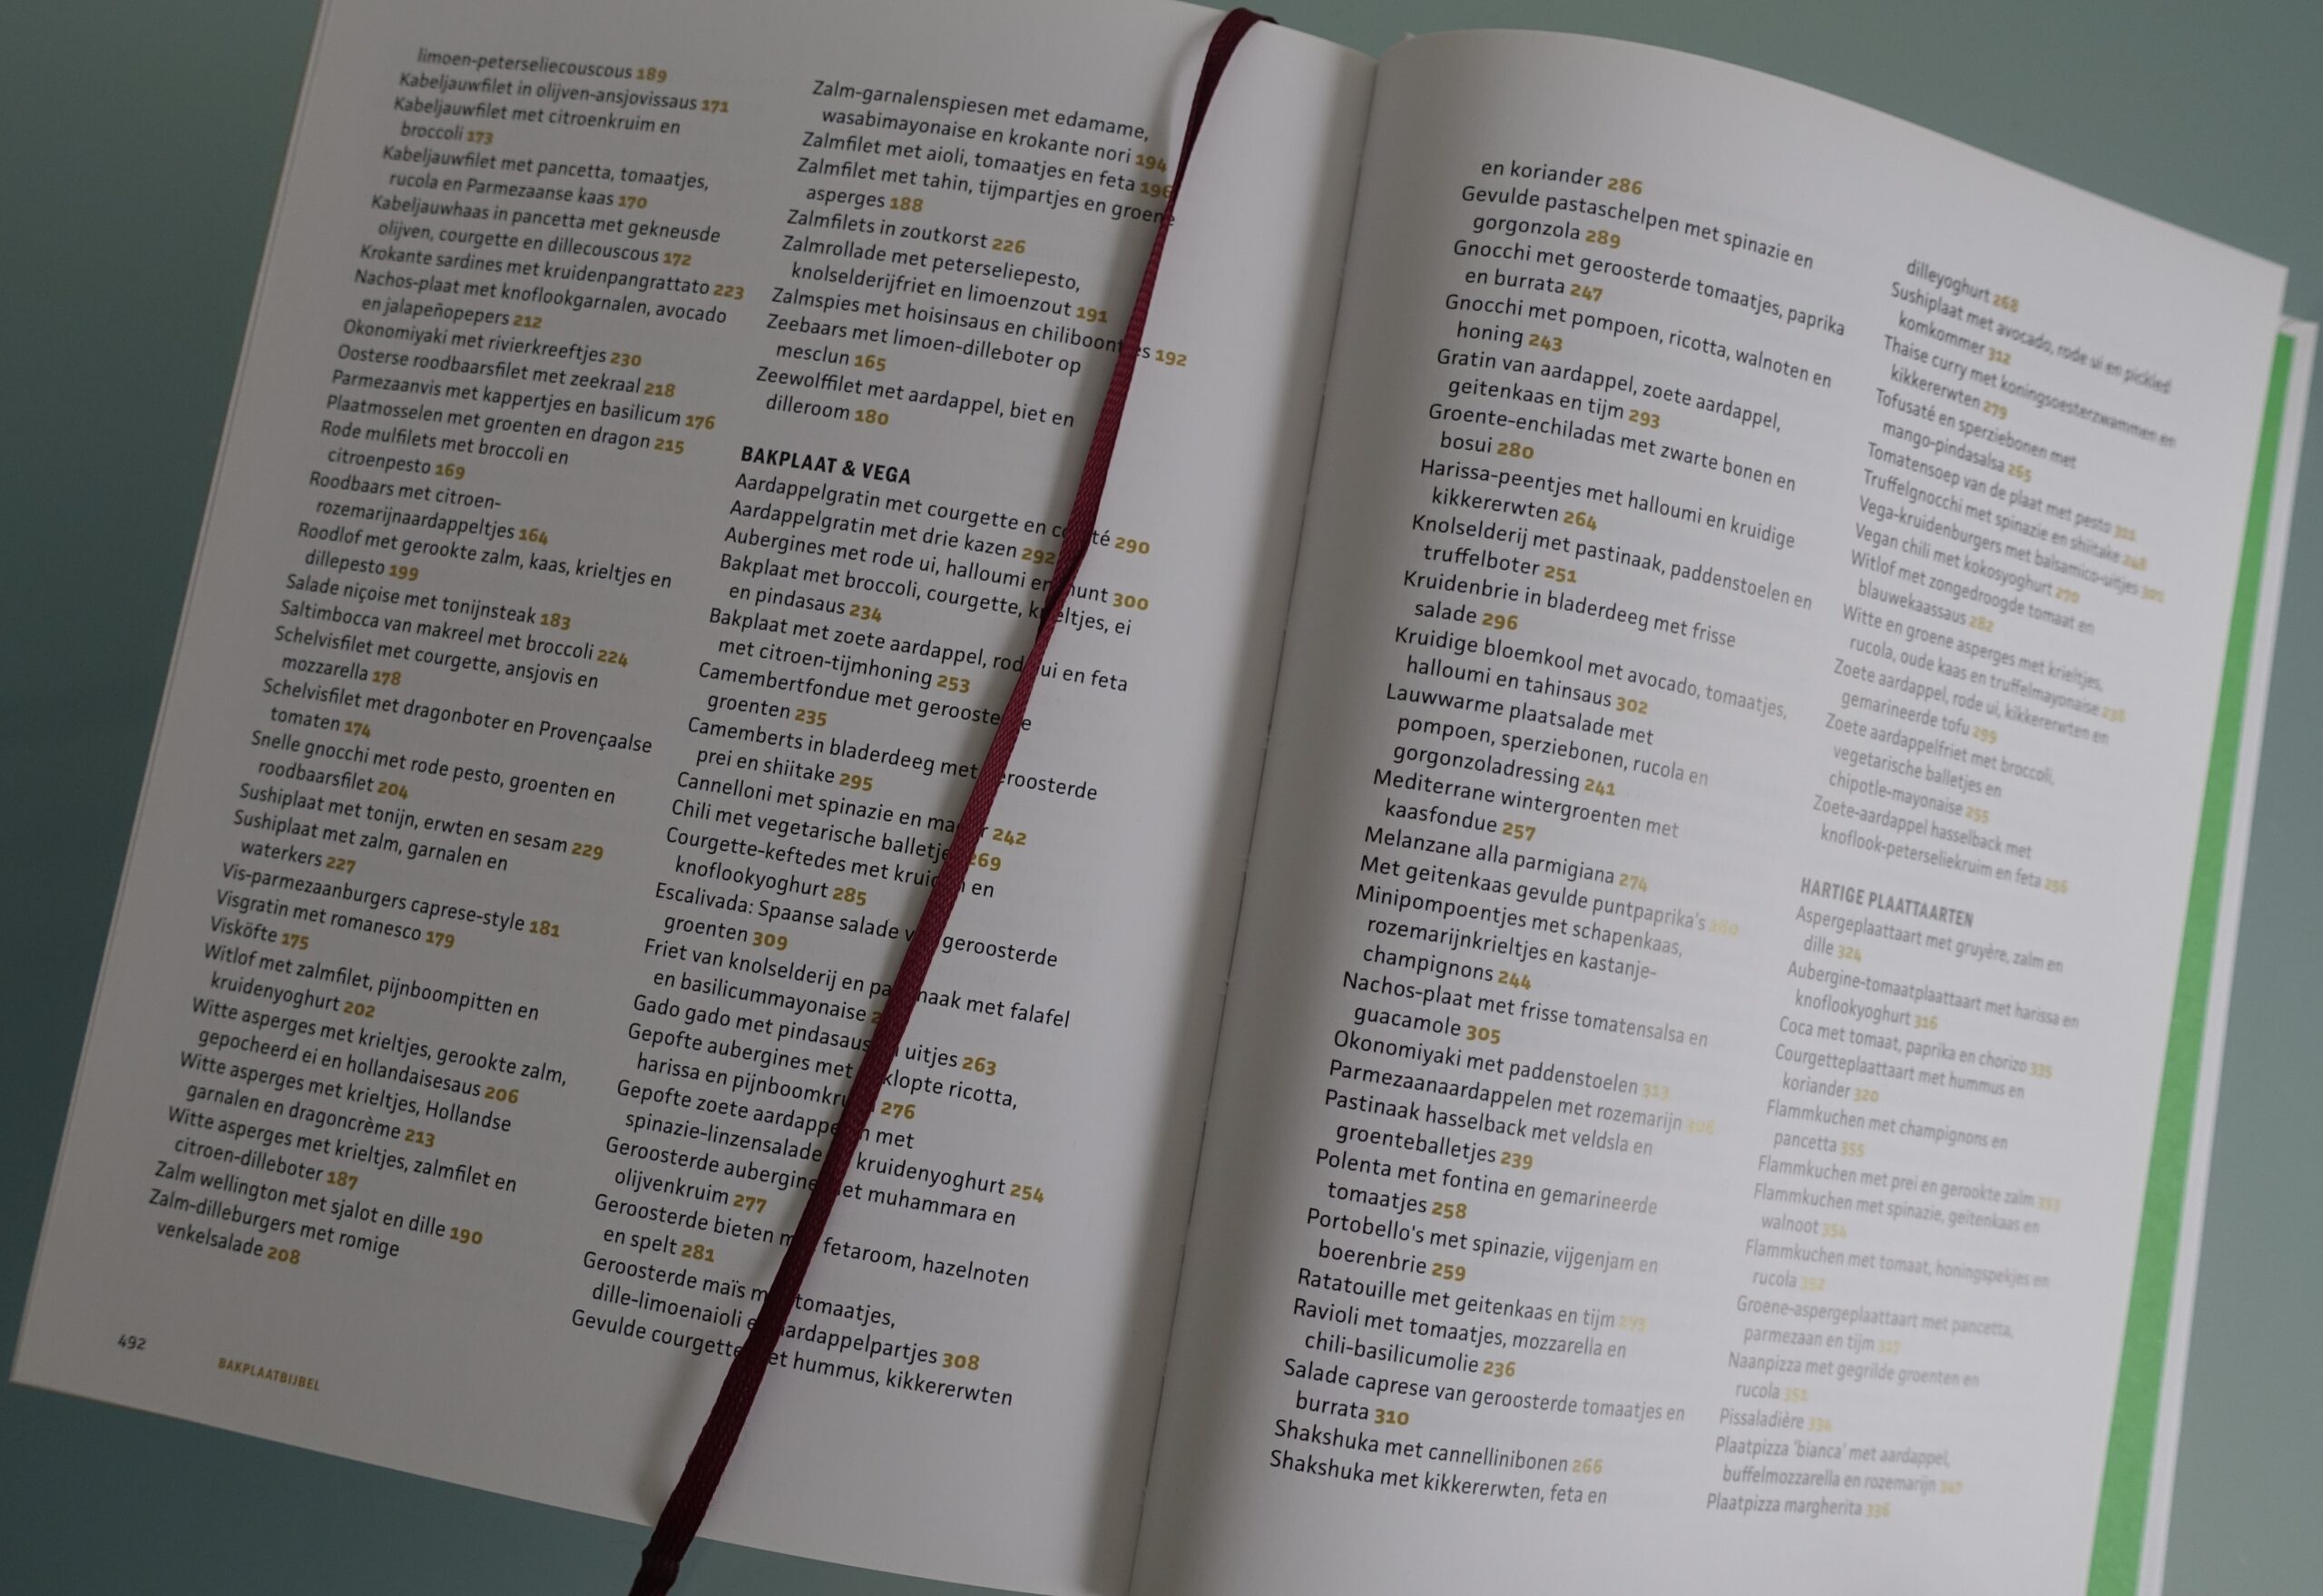 limoen-peterseliecouscous 189
Kabeljauwfilet in olijven-ansjovissaus 171
Kabeljauwfilet met citroenkruim en
broccoli 173
Kabeljauwfilet met pancetta, tomaatjes,
rucola en Parmezaanse kaas 170
Kabeljauwhaas in pancetta met gekneusde
olijven, courgette en dillecouscous 172
Krokante sardines met kruidenpangrattato 223
Nachos-plaat met knoflookgarnalen, avocado
en jalapeñopepers 212
Okonomiyaki met rivierkreeftjes 230
Oosterse roodbaarsfilet met zeekraal 218
Parmezaanvis met kappertjes en basilicum 176
Plaatmosselen met groenten en dragon 215
Rode mulfilets met broccoli en
citroenpesto 169
Roodbaars met citroen-
rozemarijnaardappeltjes 164
Roodlof met gerookte zalm, kaas, krieltjes en
dillepesto 199
Salade niçoise met tonijnsteak 183
Saltimbocca van makreel met broccoli 224
Schelvisfilet met courgette, ansjovis en
mozzarella 178
Schelvisfilet met dragonboter en Provençaalse
tomaten 174
Snelle gnocchi met rode pesto, groenten en
roodbaarsfilet 204
Sushiplaat met tonijn, erwten en sesam 229
Sushiplaat met zalm, garnalen en
waterkers 227
Vis-parmezaanburgers caprese-style 181
Visgratin met romanesco 179
Visköfte 175
Witlof met zalmfilet, pijnboompitten en
kruidenyoghurt 202
Witte asperges met krieltjes, gerookte zalm,
gepocheerd ei en hollandaisesaus 206
Witte asperges met krieltjes, Hollandse
garnalen en dragoncrème 213
Witte asperges met krieltjes, zalmfilet en
citroen-dilleboter 187
Zalm wellington met sjalot en dille 190
Zalm-dilleburgers met romige
venkelsalade 208
492
BAKPLAATBIJBEL
Zalm-garnalenspiesen met edamame,
wasabimayonaise en krokante nori 194
Zalmfilet met aioli, tomaatjes en feta 196
Zalmfilet met tahin, tijmpartjes en groene
asperges 188
Zalmfilets in zoutkorst 226
Zalmrollade met peterseliepesto,
knolselderijfriet en limoenzout 191
Zalmspies met hoisinsaus en chiliboontjes 192
Zeebaars met limoen-dilleboter op
mesclun 165
Zeewolffilet met aardappel, biet en
dilleroom 180
BAKPLAAT & VEGA
Aardappelgratin met courgette en comté 290
Aardappelgratin met drie kazen 292
Aubergines met rode ui, halloumi en munt 300
Bakplaat met broccoli, courgette, krieltjes, ei
en pindasaus 234
Bakplaat met zoete aardappel, rode ui en feta
met citroen-tijmhoning 253
Camembertfondue met geroosterde
groenten 235
Camemberts in bladerdeeg met geroosterde
prei en shiitake 295
Cannelloni met spinazie en 242
Chili met vegetarische balletjes 269
Courgette-keftedes met kruiden en
knoflookyoghurt 285
Escalivada: Spaanse salade van geroosterde
groenten 309
Friet van knolselderij en pastinaak met falafel
en basilicummayonaise
Gado gado met pindasaus en uitjes 263
Gepofte aubergines met geklopte ricotta,
harissa en pijnboomkruim 276
Gepofte zoete aardappelen met
spinazie-linzensalade en kruidenyoghurt 254
Geroosterde aubergine met muhammara en
olijvenkruim 277
Geroosterde bieten met fetaroom, hazelnoten
en spelt 281
Geroosterde maïs met tomaatjes,
dille-limoenaioli en aardappelpartjes 308
Gevulde courgette met hummus, kikkererwten
en koriander 286
Gevulde pastaschelpen met spinazie en
gorgonzola 289
Gnocchi met geroosterde tomaatjes, paprika
en burrata 247
Gnocchi met pompoen, ricotta, walnoten en
honing 243
Gratin van aardappel, zoete aardappel,
geitenkaas en tijm 293
Groente-enchiladas met zwarte bonen en
bosui 280
Harissa-peentjes met halloumi en kruidige
kikkererwten 264
Knolselderij met pastinaak, paddenstoelen en
truffelboter 251
Kruidenbrie in bladerdeeg met frisse
salade 296
Kruidige bloemkool met avocado, tomaatjes,
halloumi en tahinsaus 302
Lauwwarme plaatsalade met
pompoen, sperziebonen, rucola en
gorgonzoladressing 241
Mediterrane wintergroenten met
kaasfondue 257
Melanzane alla parmigiana 274
Met geitenkaas gevulde puntpaprika's
Minipompoentjes met schapenkaas,
rozemarijnkrieltjes en kastanje-
champignons 244
Nachos-plaat met frisse tomatensalsa en
guacamole 305
Okonomiyaki met paddenstoelen 313
Parmezaanaardappelen met rozemarijn
Pastinaak hasselback met veldsla en
groenteballetjes 239
Polenta met fontina en gemarineerde
tomaatjes 258
Portobello's met spinazie, vijgenjam en
boerenbrie 259
Ratatouille met geitenkaas en tijm
Ravioli met tomaatjes, mozzarella en
chili-basilicumolie 236
Salade caprese van geroosterde tomaatjes en
burrata 310
Shakshuka met cannellinibonen 266
Shakshuka met kikkererwten, feta en
dilleyoghurt 268
Sushiplaat met avocado, rode ui en pickled
komkommer 312
Thaise curry met koningsoesterzwammen en
kikkererwten 279
Tofusaté en sperziebonen met
mango-pindasalsa 265
Tomatensoep van de plaat met pesto
Truffelgnocchi met spinazie en shiitake 248
Vega-kruidenburgers met balsamico-uitjes
Vegan chili met kokosyoghurt 270
Witlof met zongedroogde tomaat en
blauwekaassaus 282
Witte en groene asperges met krieltjes,
rucola, oude kaas en truffelmayonaise
Zoete aardappel, rode ui, kikkererwten en
gemarineerde tofu 299
Zoete aardappelfriet met broccoli,
vegetarische balletjes en
chipotle-mayonaise 255
Zoete-aardappel hasselback met
knoflook-peterseliekruim en feta 256
HARTIGE PLAATTAARTEN
Aspergeplaattaart met gruyère, zalm en
dille 324
Aubergine-tomaatplaattaart met harissa en
knoflookyoghurt 316
Coca met tomaat, paprika en chorizo 335
Courgetteplaattaart met hummus en
koriander 320
Flammkuchen met champignons en
pancetta 355
Flammkuchen met prei en gerookte zalm
Flammkuchen met spinazie, geitenkaas en
walnoot 354
Flammkuchen met tomaat, honingspekjes en
rucola 352
Groene-aspergeplaattaart met pancetta,
parmezaan en tijm
Naanpizza met gegrilde groenten en
rucola 351
Pissaladière 334
Plaatpizza 'bianca' met aardappel,
buffelmozzarella en rozemarijn
Plaatpizza margherita 336